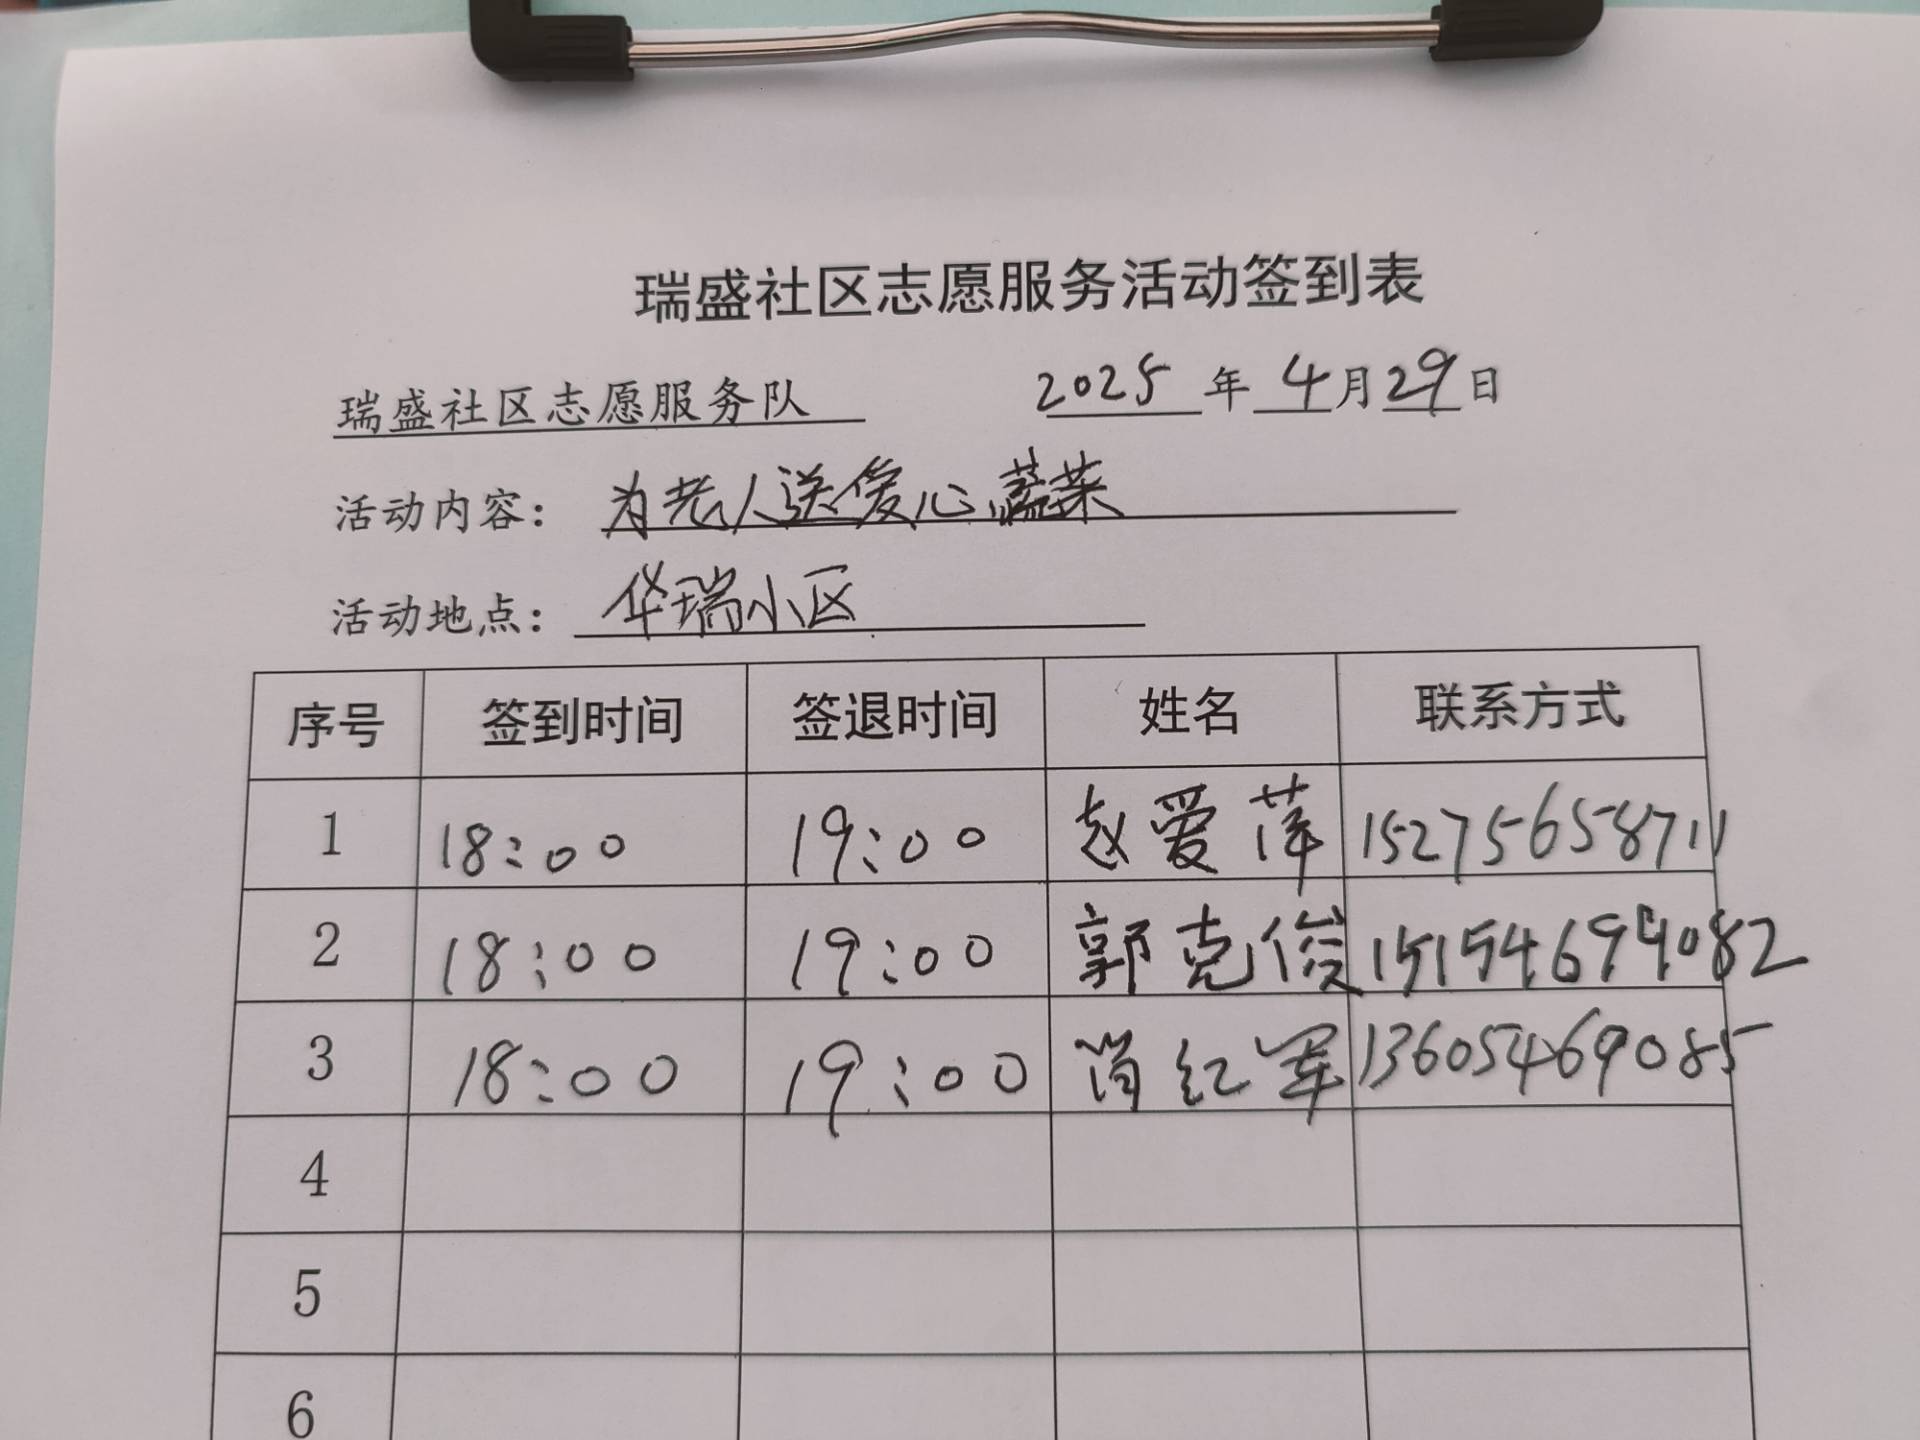 瑞盛社区志愿服务活动签到表
瑞盛社区志愿服务队 2025年4月29日
活动内容：为老人送爱心蔬菜
活动地点：华瑞小区
序号 签到时间 签退时间 姓名 联系方式
1 18:00 19:00 赵爱萍 15275658711
2 18:00 19:00 郭克俊 15154699082
3 18:00 19:00 肖红军 13605469085
4
5
6